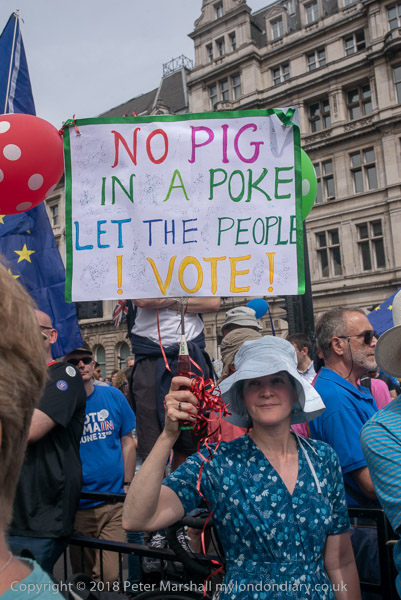 NO PIG
IN A POKE
LET THE PEOPLE
! VOTE !
VOTE
REMAIN
JUNE 23RD
Copyright © 2018 Peter Marshall mylondondiary.co.uk